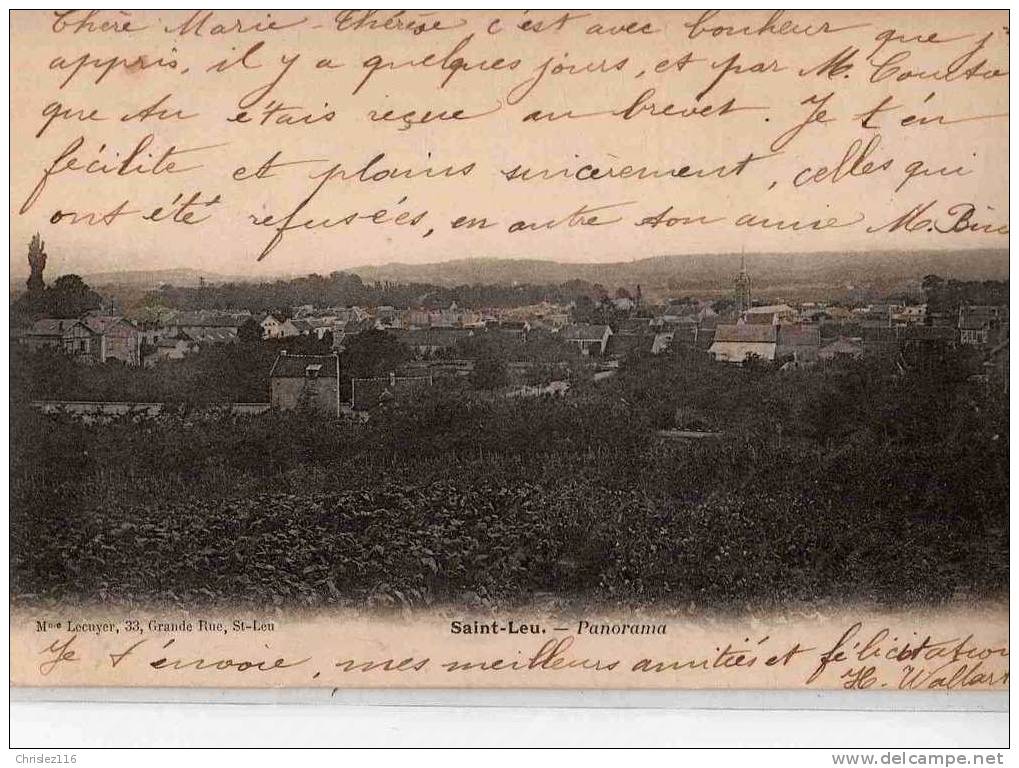 Chère Marie-Thérèse, c'est avec bonheur que j'
appris, il y a quelques jours, et par M.
que tu étais reçue au brevet. Je t'en
félicite et plains sincèrement, celles qui
ont été refusées, en autre ton amie M.
Mme Lecuyer, 33, Grande Rue, St-Leu
Saint-Leu. — Panorama
Je t'envoie, mes meilleurs amitiés et félicitation
H. Wallart
Chrislez116
www.delcampe.net